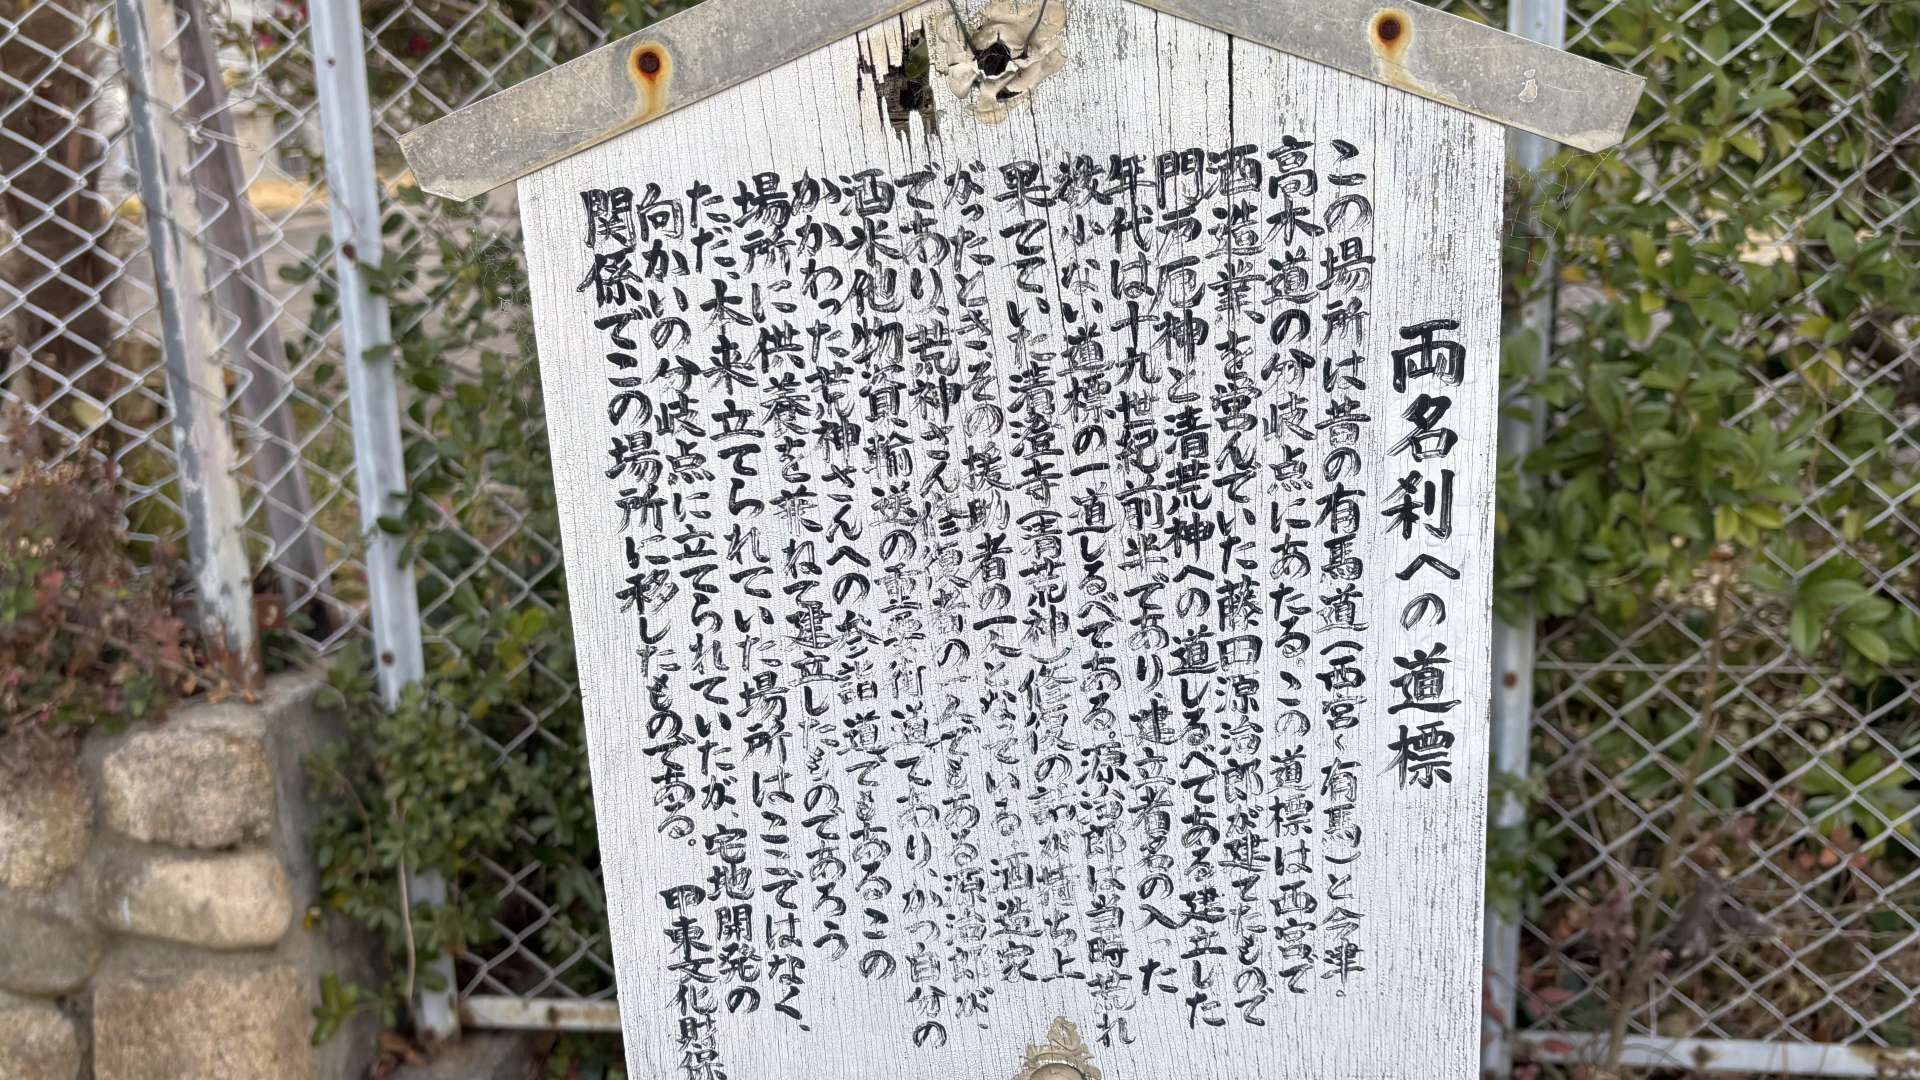 両名刹への道標
この場所は昔の有馬道(西宮〜有馬)と今津。
高木道の分岐点にあたる。この道標は西宮で
酒造業を営んでいた藤田源治郎が建てたもので
門戸厄神と清荒神への道しるべである建立した
年代は十九世紀前半であり、建立者名の入った
数少ない道標の一道しるべである。源治郎は当時荒れ
果てていた清澄寺(清荒神)修復の話が持ち上
がったとき、その援助者の一人となっている。酒造家
であり、荒神さん修復者の一人でもある源治郎が、
酒米他物資輸送の重要街道であり、かつ自分の
かかわった荒神さんへの参詣道でもあるこの
場所に供養を兼ねて建立したものであろう
ただ、本来立てられていた場所はここではなく、
向かいの分岐点に立てられていたが、宅地開発の
関係でこの場所に移したものである。
甲東文化財保